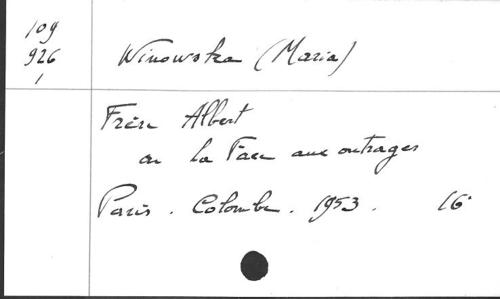 109
926
1
Winowska (Maria)
Frère Albert
ou la Face aux outrages
Paris. Colombe. 1953. 16°